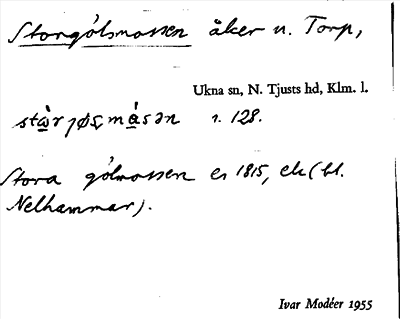 Storgölsmossen åker u. Torp,
Ukna sn, N. Tjusts hd, Klm. l.
s. 128.
Stora gölmossen es 1815, ek (bl.
Nelhammar).
Ivar Modéer 1955